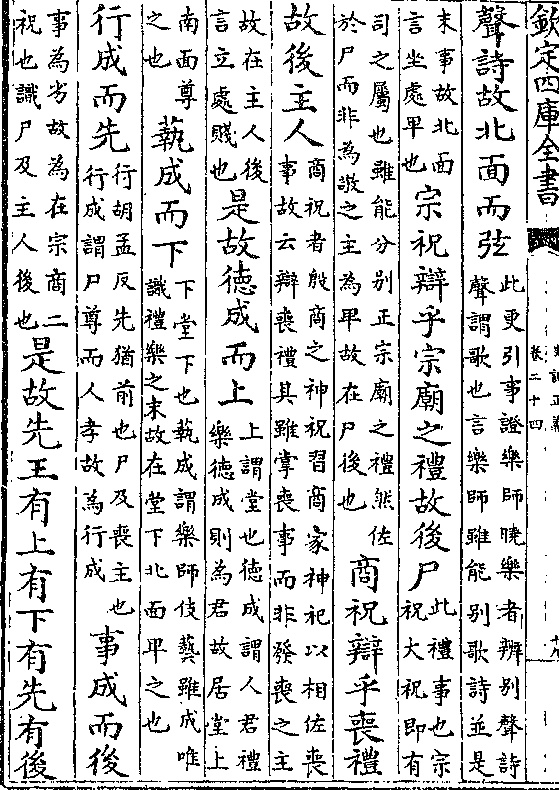 欽定四庫全書
卷二十四
聲詩故北面而弦
此更引事證樂師曉樂者辨別聲詩
聲謂歌也言樂師雖能別歌詩並是
末事故北面
言坐處卑也
宗祝辯乎宗廟之禮故後尸
此禮事也宗
祝大祝即有
司之屬也雖能分別正宗廟之禮然佐
於尸而非為敬之主為卑故在尸後也
商祝辯乎喪禮
故後主人
商祝者殷商之神祝習商家神祀以相佐喪
事故云辯喪禮其雖掌喪事而非發喪之主
故在主人後
言立處賤也
是故徳成而上
上謂堂也徳成謂人君禮
樂徳成則為君故居堂上
南面尊
之也
藝成而下
下堂下也藝成謂樂師伎藝雖成唯
識禮樂之末故在堂下北面卑之也
行成而先
行胡孟反先猶前也尸及喪主也
行成謂尸尊而人孝故為行成
事成而後
事為劣故為在宗商二
祝也識尸及主人後也
是故先王有上有下有先有後